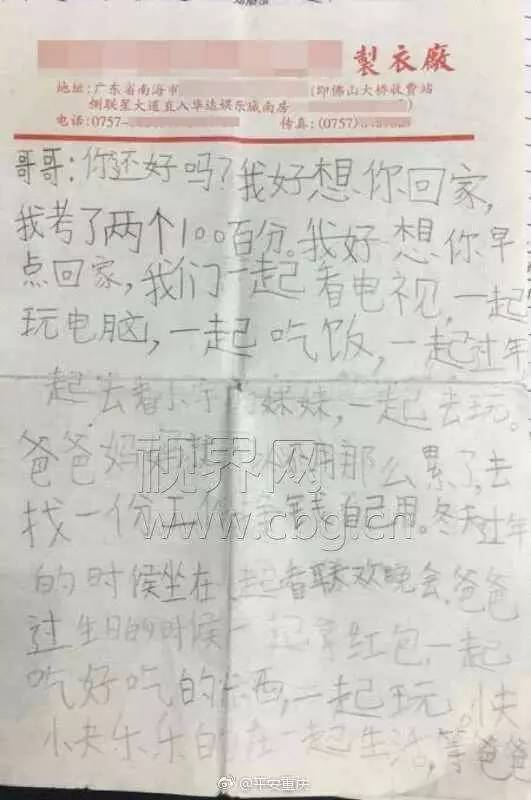 製衣廠
地址:广东省南海市 (即佛山大桥收费站
侧联星大道直入华达娱乐城南房
电话:0757- 传真:(0757)
哥哥:你还好吗?我好想你回家,
我考了两个100百分。我好想你早
点回家,我们一起看电视,一起
玩电脑,一起吃饭,一起过年
起去看小宇 妹妹,一起去玩。
爸爸妈 用那么累了,去
找一份工 钱自己用。冬天过年
的时候坐在一起看联欢晚会,爸爸
过生日的时候一起拿红包,一起
吃好吃的东西,一起玩。快
快乐乐的在一起生活,等爸爸
视界网
www.cbg.cn
@平安重庆